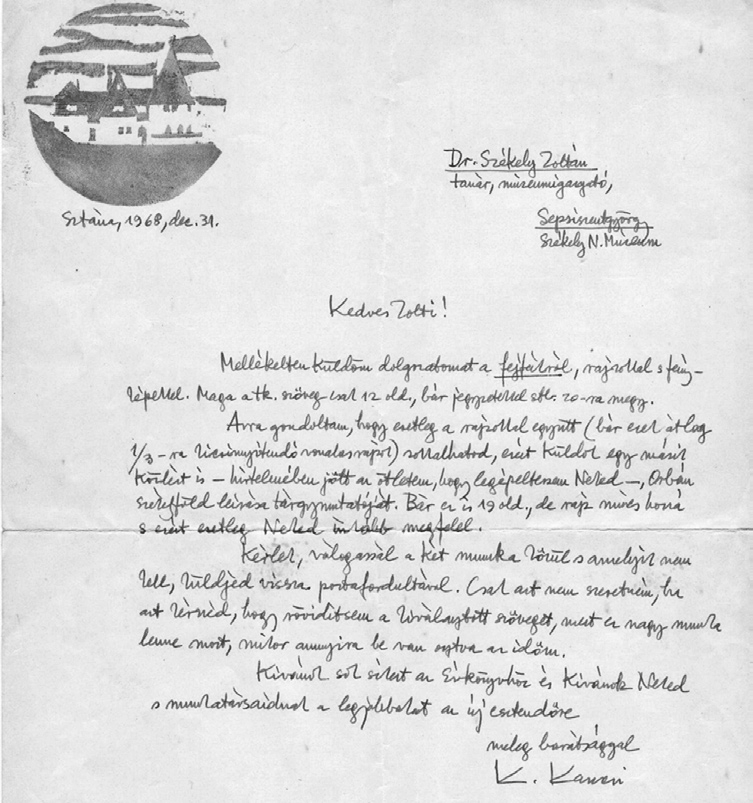 Sztána, 1968, dec. 31.
Dr. Székely Zoltán
tanár, múzeumigazgató,
Sepsiszentgyörgy
Székely N. Múzeum
Kedves Zolti!
Mellékelten küldöm dolgozatomat a fejfákról, rajzokkal s fény-
képekkel. Maga a tk. szöveg csak 12 old., bár jegyzetekkel stb. 20-ra megy.
Arra gondoltam, hogy esetleg a rajzokkal együtt (bár ezek átlag
1/3-ra kicsinyítendő vonalas rajzok) sokallhatod, ezért küldök egy másik
közlést is – hirtelmében jött az ötletem, hogy legépeltessem Neked –, Orbán
székelyföld leírása tárgymutatóját. Bár ez is 19 old., de rajz nincs hozzá
s ezért esetleg Neked inkább megfelel.
Kérlek, válogassál a két munka közül s amelyik nem
kell, küldjed vissza postafordultával. Csak azt nem szeretném, ha
azt kérnéd, hogy rövidítsem a kiválasztott szöveget, mert ez nagy munka
lenne most, mikor annyira be van osztva az időm.
Kívánok sok sikert az Évkönyvhöz és Kívánok Neked
s munkatársaidnak a legjobbakat az új esztendőre
meleg barátsággal
K.